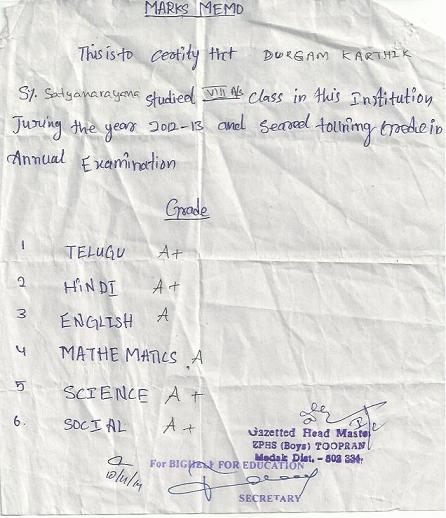 MARKS MEMO
This is to certify tht DURGAM KARTHIK
S/. Satyanarayana studied VIII class in this Institution
During the year 2012-13 and Seared follining Grade in
Annual Examination
Grade
1 TELUGU A+
2 HiNDI A+
3 ENGLISH A
4 MATHEMATICS A
5 SCIENCE A+
6. SOCIAL A+
Gazetted Head Maste
ZPHS (Boys) TOOPRAN
Medak Dist. - 502 334.
For FOR EDUCATION
SECRETARY